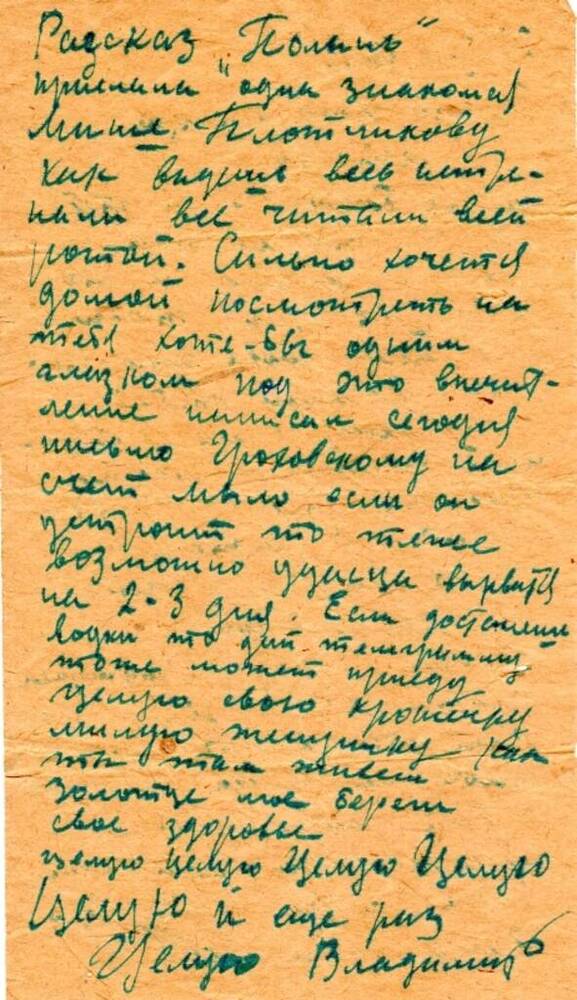 Рассказ „Полынь"
прислала одна знакомая
Мише Плотникову
как видишь весь истре-
пали все читали всей
ротой. Сильно хочется
домой посмотреть на
тебя хотя-бы одним
глазком под это впечат-
ление написал сегодня
письмо Гроховскому на
счет мыло если он
устроит то тоже
возможно удасца вырватся
на 2-3 дня. Если достанеш
водки то дай телеграмму
тоже может приеду
целую свою крошечку
милую женушку как
ты там живеш
золотце мое береги
свое здоровье
целую целую Целую Целую
Целую и еще раз
Целую Владимир